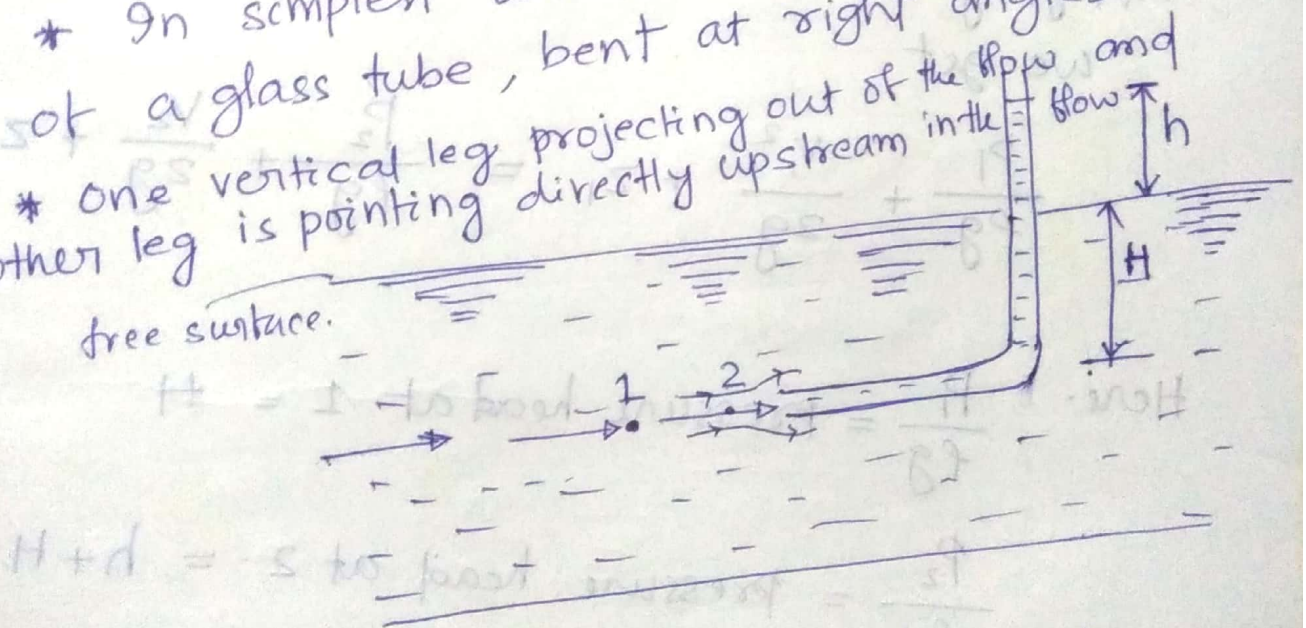 * In
of a glass tube, bent at right
* one vertical leg projecting out of the flow and
other leg is pointing directly upstream in the flow
h
H
free surface.
1 2